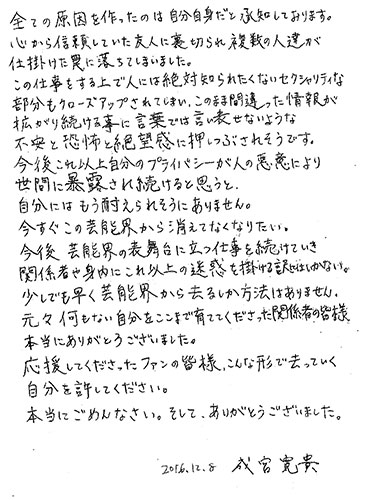 全ての原因を作ったのは自分自身だと承知しております。
心から信頼していた友人に裏切られ複数の人達が
仕掛けた罠に落ちてしまいました。
この仕事をする上で人には絶対知られたくないセクシャリティな
部分もクローズアップされてしまい、このまま間違った情報が
拡がり続ける事に言葉では言い表せないような
不安と恐怖と絶望感に押しつぶされそうです。
今後これ以上自分のプライバシーが人の悪意により
世間に暴露され続けると思うと、
自分にはもう耐えられそうにありません。
今すぐこの芸能界から消えてなくなりたい。
今後芸能界の表舞台に立つ仕事を続けていき
関係者や身内にこれ以上の迷惑を掛ける訳にはいかない。
少しでも早く芸能界から去るしか方法はありません。
元々何もない自分をここまで育ててくださった関係者の皆様
本当にありがとうございました。
応援してくださったファンの皆様、こんな形で去っていく
自分を許してください。
本当にごめんなさい。そして、ありがとうございました。
2016.12.8 成宮寛貴